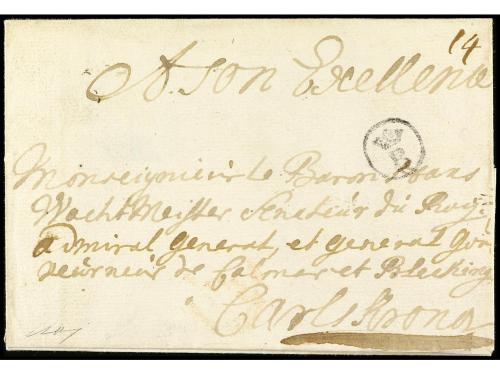 14
A son Excellence
Monseigneur le Baron Hans
WachtMeister Senateur du Roy,
admiral general, et general Gou
verneur de Calmar et Blecking
Carlskrona